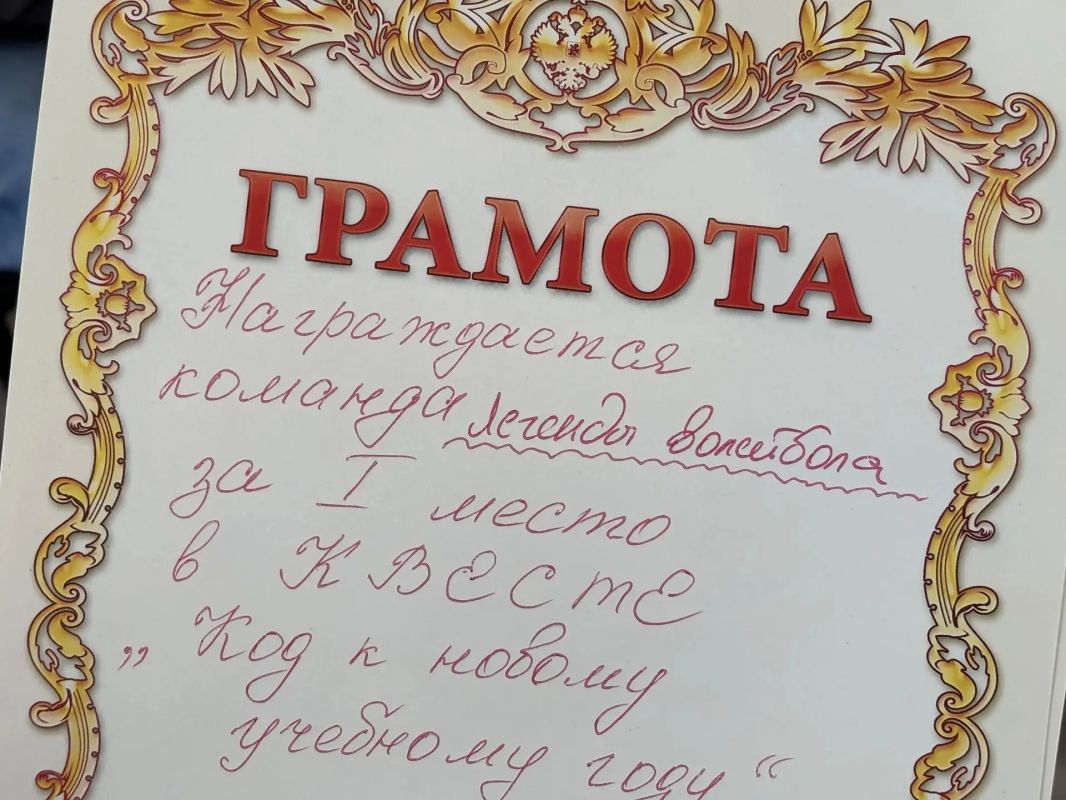 ГРАМОТА
Награждается
команда легенды волейбола
за I место
в КВЕСТЕ
„ Код к новому
учебному году “